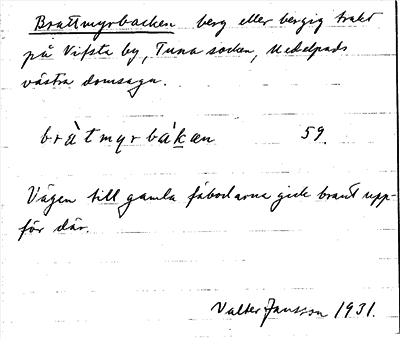 Brattmyrbacken berg eller bergig trakt
på Vifsta by, Tuna socken, Medelpads
västra domsaga.
bràtmyrbákæn 59.
Vägen till gamla fäbodarna gick brant upp-
för där.
Valter Jansson 1931.